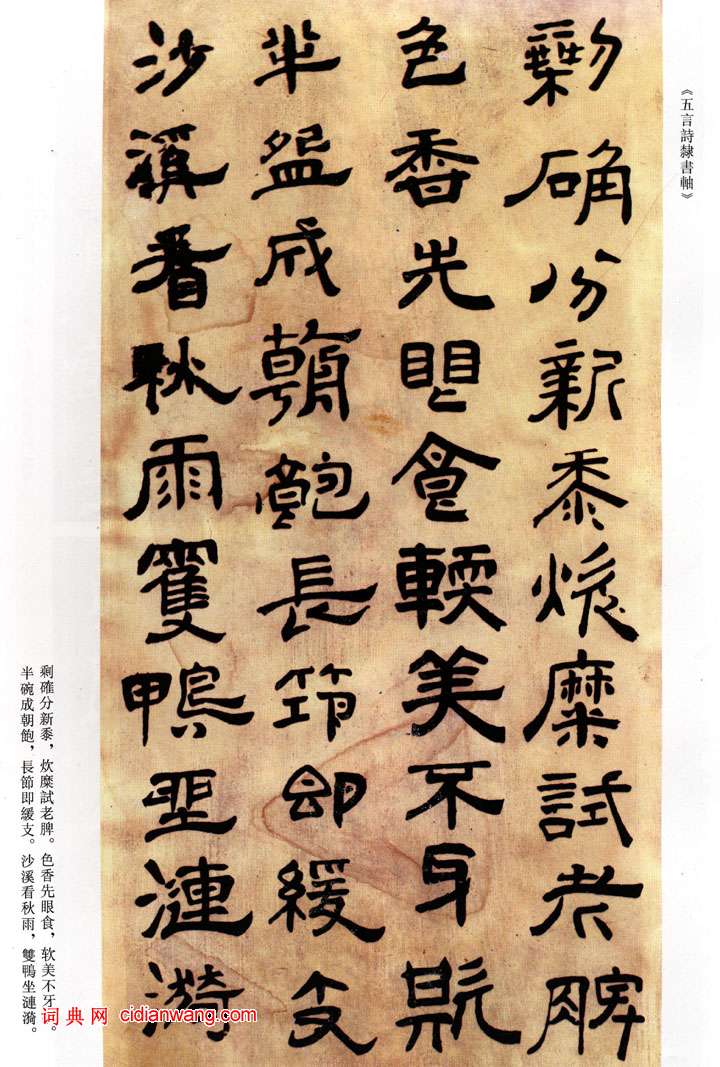 《五言詩隸書軸》
剩确分新黍炊糜試老脾
色香先眼食輭美不牙欺
半盌成朝飽長筇即緩支
沙溪看秋雨雙鴨坐漣漪
剩確分新黍，炊糜試老脾。色香先眼食，软美不牙。
半碗成朝飽，長節即緩支。沙溪看秋雨，雙鴨坐漣漪。
词典网 cidianwang.com